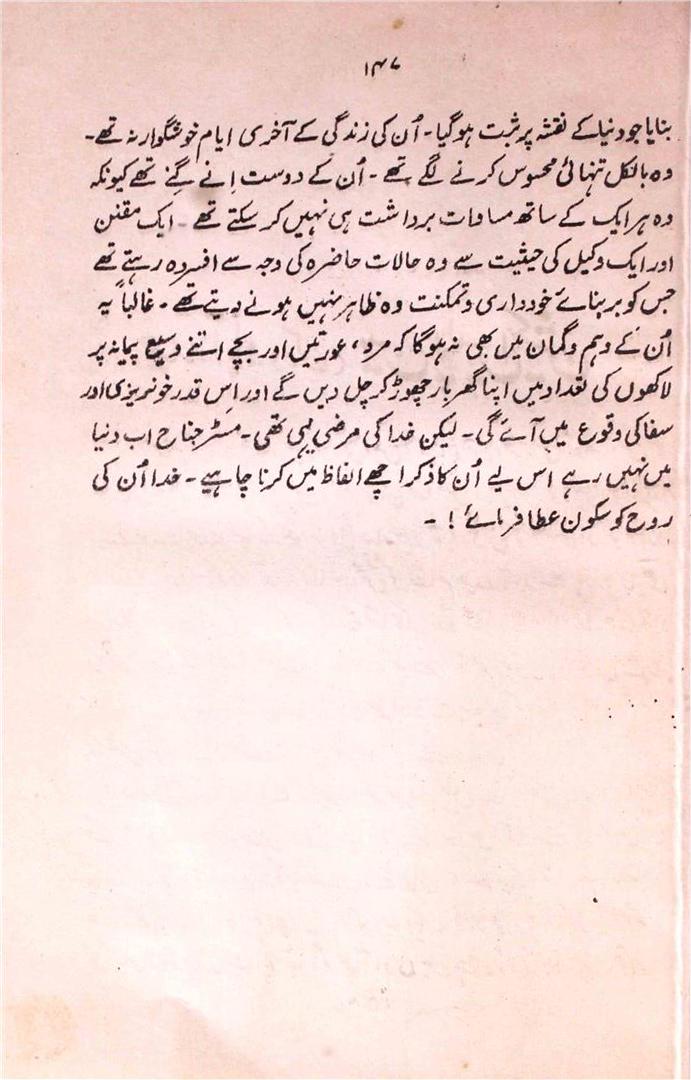 ۱۴۷
بنایا جو دنیا کے نقشہ پر ثبت ہو گیا۔ اُن کی زندگی کے آخری ایام خوشگوار نہ تھے۔
وہ بالکل تنہائی محسوس کرنے لگے تھے۔ اُن کے دوست اِنے گِنے تھے کیونکہ
وہ ہر ایک کے ساتھ مساوات برداشت ہی نہیں کر سکتے تھے۔ ایک مقنن
اور ایک وکیل کی حیثیت سے وہ حالات حاضرہ کی وجہ سے افسردہ رہتے تھے
جس کو بر بنائے خودداری و تمکنت وہ ظاہر نہیں ہونے دیتے تھے۔ غالباً یہ
اُن کے وہم و گمان میں بھی نہ ہوگا کہ مرد، عورتیں اور بچے اتنے وسیع پیمانہ پر
لاکھوں کی تعداد میں اپنا گھر بار چھوڑ کر چل دیں گے اور اِس قدر خونریزی اور
سفاکی وقوع میں آئے گی۔ لیکن خدا کی مرضی یہی تھی۔ مسٹر جناح اب دنیا
میں نہیں رہے اس لیے اُن کا ذکر اچھے الفاظ میں کرنا چاہیے۔ خدا اُن کی
روح کو سکون عطا فرمائے! ۔